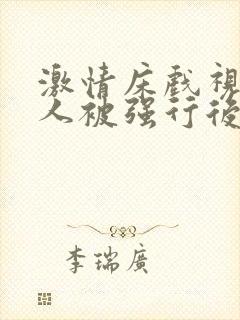 激情床戲視
人被强行後
李瑞廣